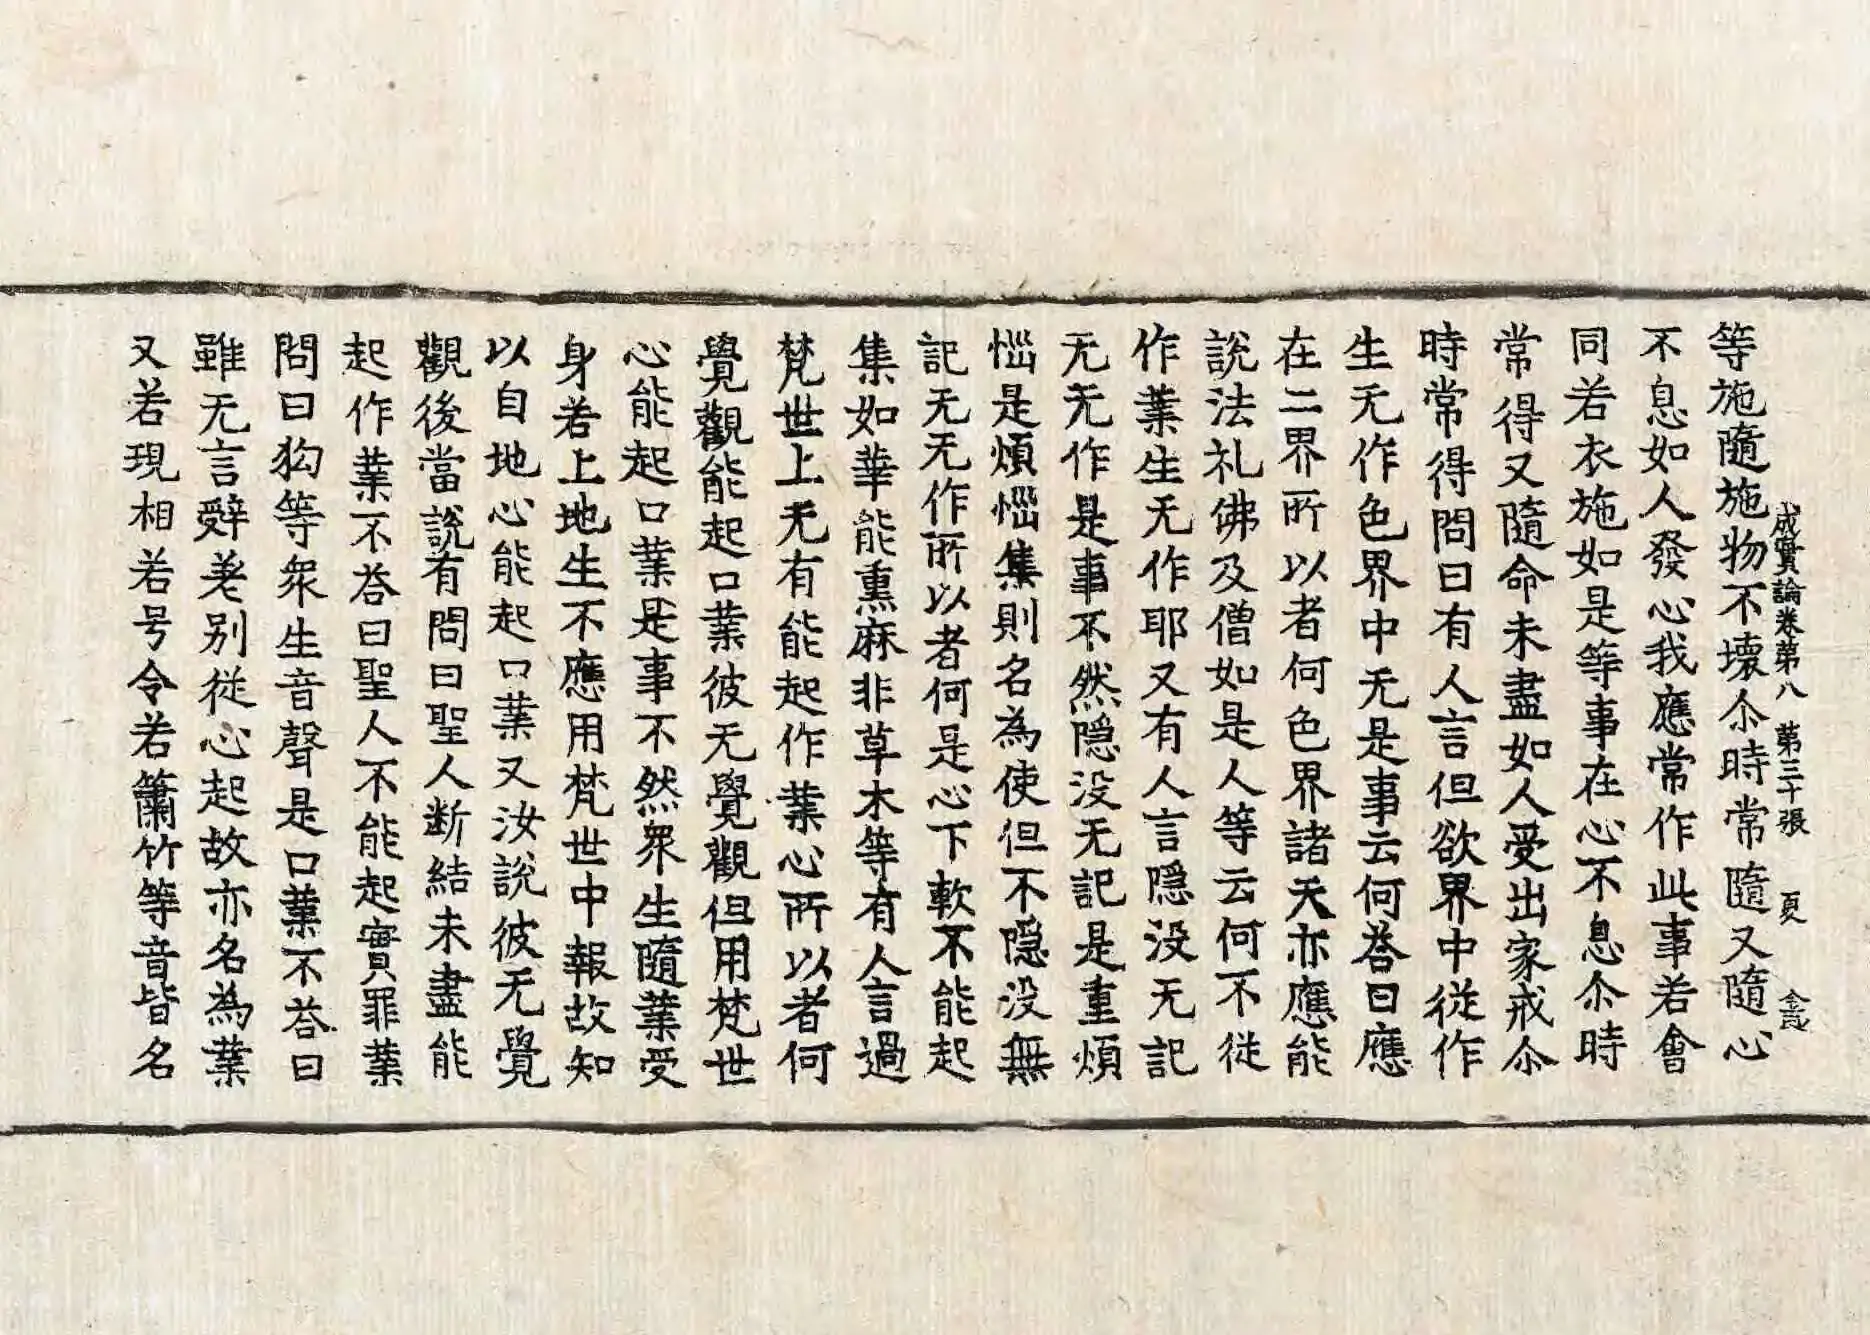 成實論卷第八 第三十張 夏
等施隨施物不壞尒時常隨又隨心
不息如人發心我應常作此事若會
同若衣施如是等事在心不息尒時
常得又隨命未盡如人受出家戒尒
時常得問曰有人言但欲界中從作
生无作色界中无是事云何荅曰應
在二界所以者何色界諸天亦應能
說法礼佛及僧如是人等云何不從
作業生无作耶又有人言隱没无記
无无作是事不然隱没无記是重煩
惱是煩惱集則名為使但不隱没無
記无无作所以者何是心下軟不能起
集如華能熏麻非草木等有人言過
梵世上无有能起作業心所以者何
覺觀能起口業彼无覺觀但用梵世
心能起口業是事不然衆生隨業受
身若上地生不應用梵世中報故知
以自地心能起口業又汝說彼无覺
觀後當說有問曰聖人断結未盡能
起作業不荅曰聖人不能起實罪業
問曰狗等衆生音聲是口業不荅曰
雖无言辭差别從心起故亦名為業
又若現相若号令若簫竹等音皆名